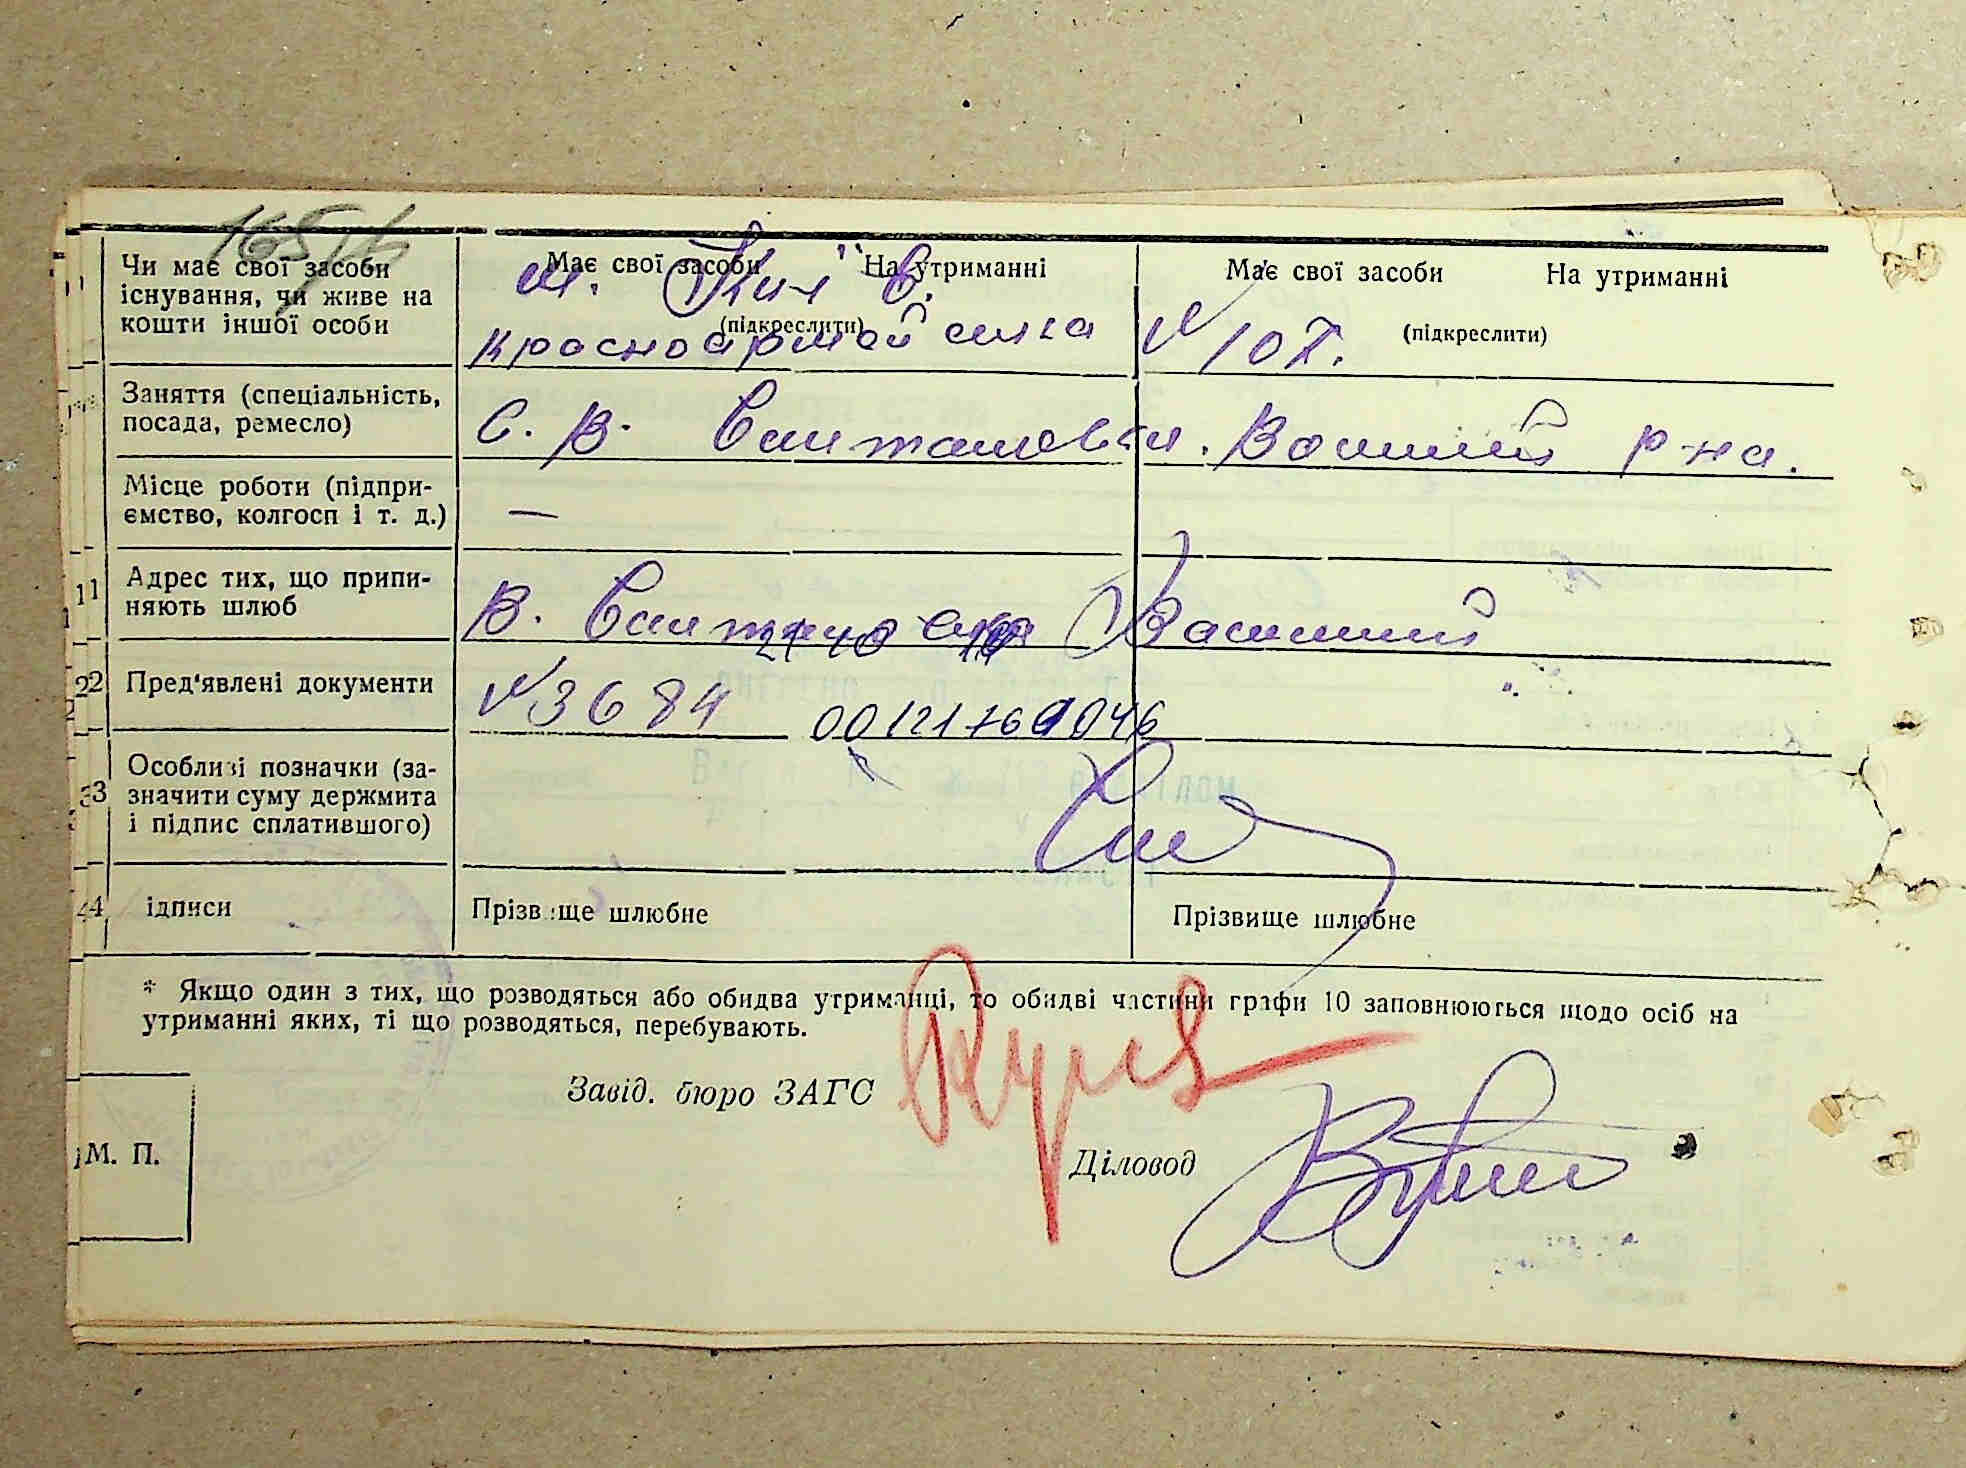 165
Чи має свої засоби існування, чи живе на кошти іншої особи
Має свої засоби На утриманні
(підкреслити)
Має свої засоби На утриманні
(підкреслити)
м. Київ.
красноармейська № 10
Заняття (спеціальність, посада, ремесло)
С. В. р-на.
Місце роботи (підприємство, колгосп і т. д.)
—
11 Адрес тих, що припиняють шлюб
В.
22 Пред'явлені документи
№ 3684 00121769046
33 Особливі позначки (зазначити суму держмита і підпис сплатившого)
24 ідписи
Прізвище шлюбне
Прізвище шлюбне
* Якщо один з тих, що розводяться або обидва утриманці, то обидві частини графи 10 заповнюються щодо осіб на
утриманні яких, ті що розводяться, перебувають.
Завід. бюро ЗАГС
Діловод
М. П.